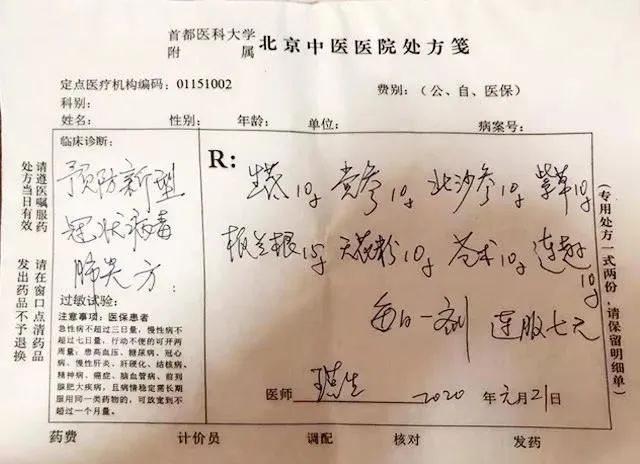 首都医科大学
附 属 北京中医医院处方笺
定点医疗机构编码：01151002 费别：（公、自、医保）
科别：
姓名： 性别： 年龄： 单位： 病案号：
请遵医嘱服药 请在窗口点清药品
处方当日有效 发出药品不予退换
临床诊断：
预防新型
冠状病毒
肺炎方
过敏试验：
注意事项：医保患者
急性病不超过三日量，慢性病不
超过七日量，行动不便的可开两
周量；患高血压、糖尿病、冠心
病、慢性肝炎、肝硬化、结核病、
精神病、癌症、脑血管病、前列
腺肥大疾病，且病情稳定需长期
服用同一类药物的，可放宽到不
超过一个月量。
R:
生芪10g 党参10g 北沙参10g 紫草10g
板兰根15g 天花粉10g 苍术10g 连翘10g
每日一剂 连服七天
医师 2020 年元月21日
（专用处方一式两份，请保留明细单）
药费 计价员 调配 核对 发药